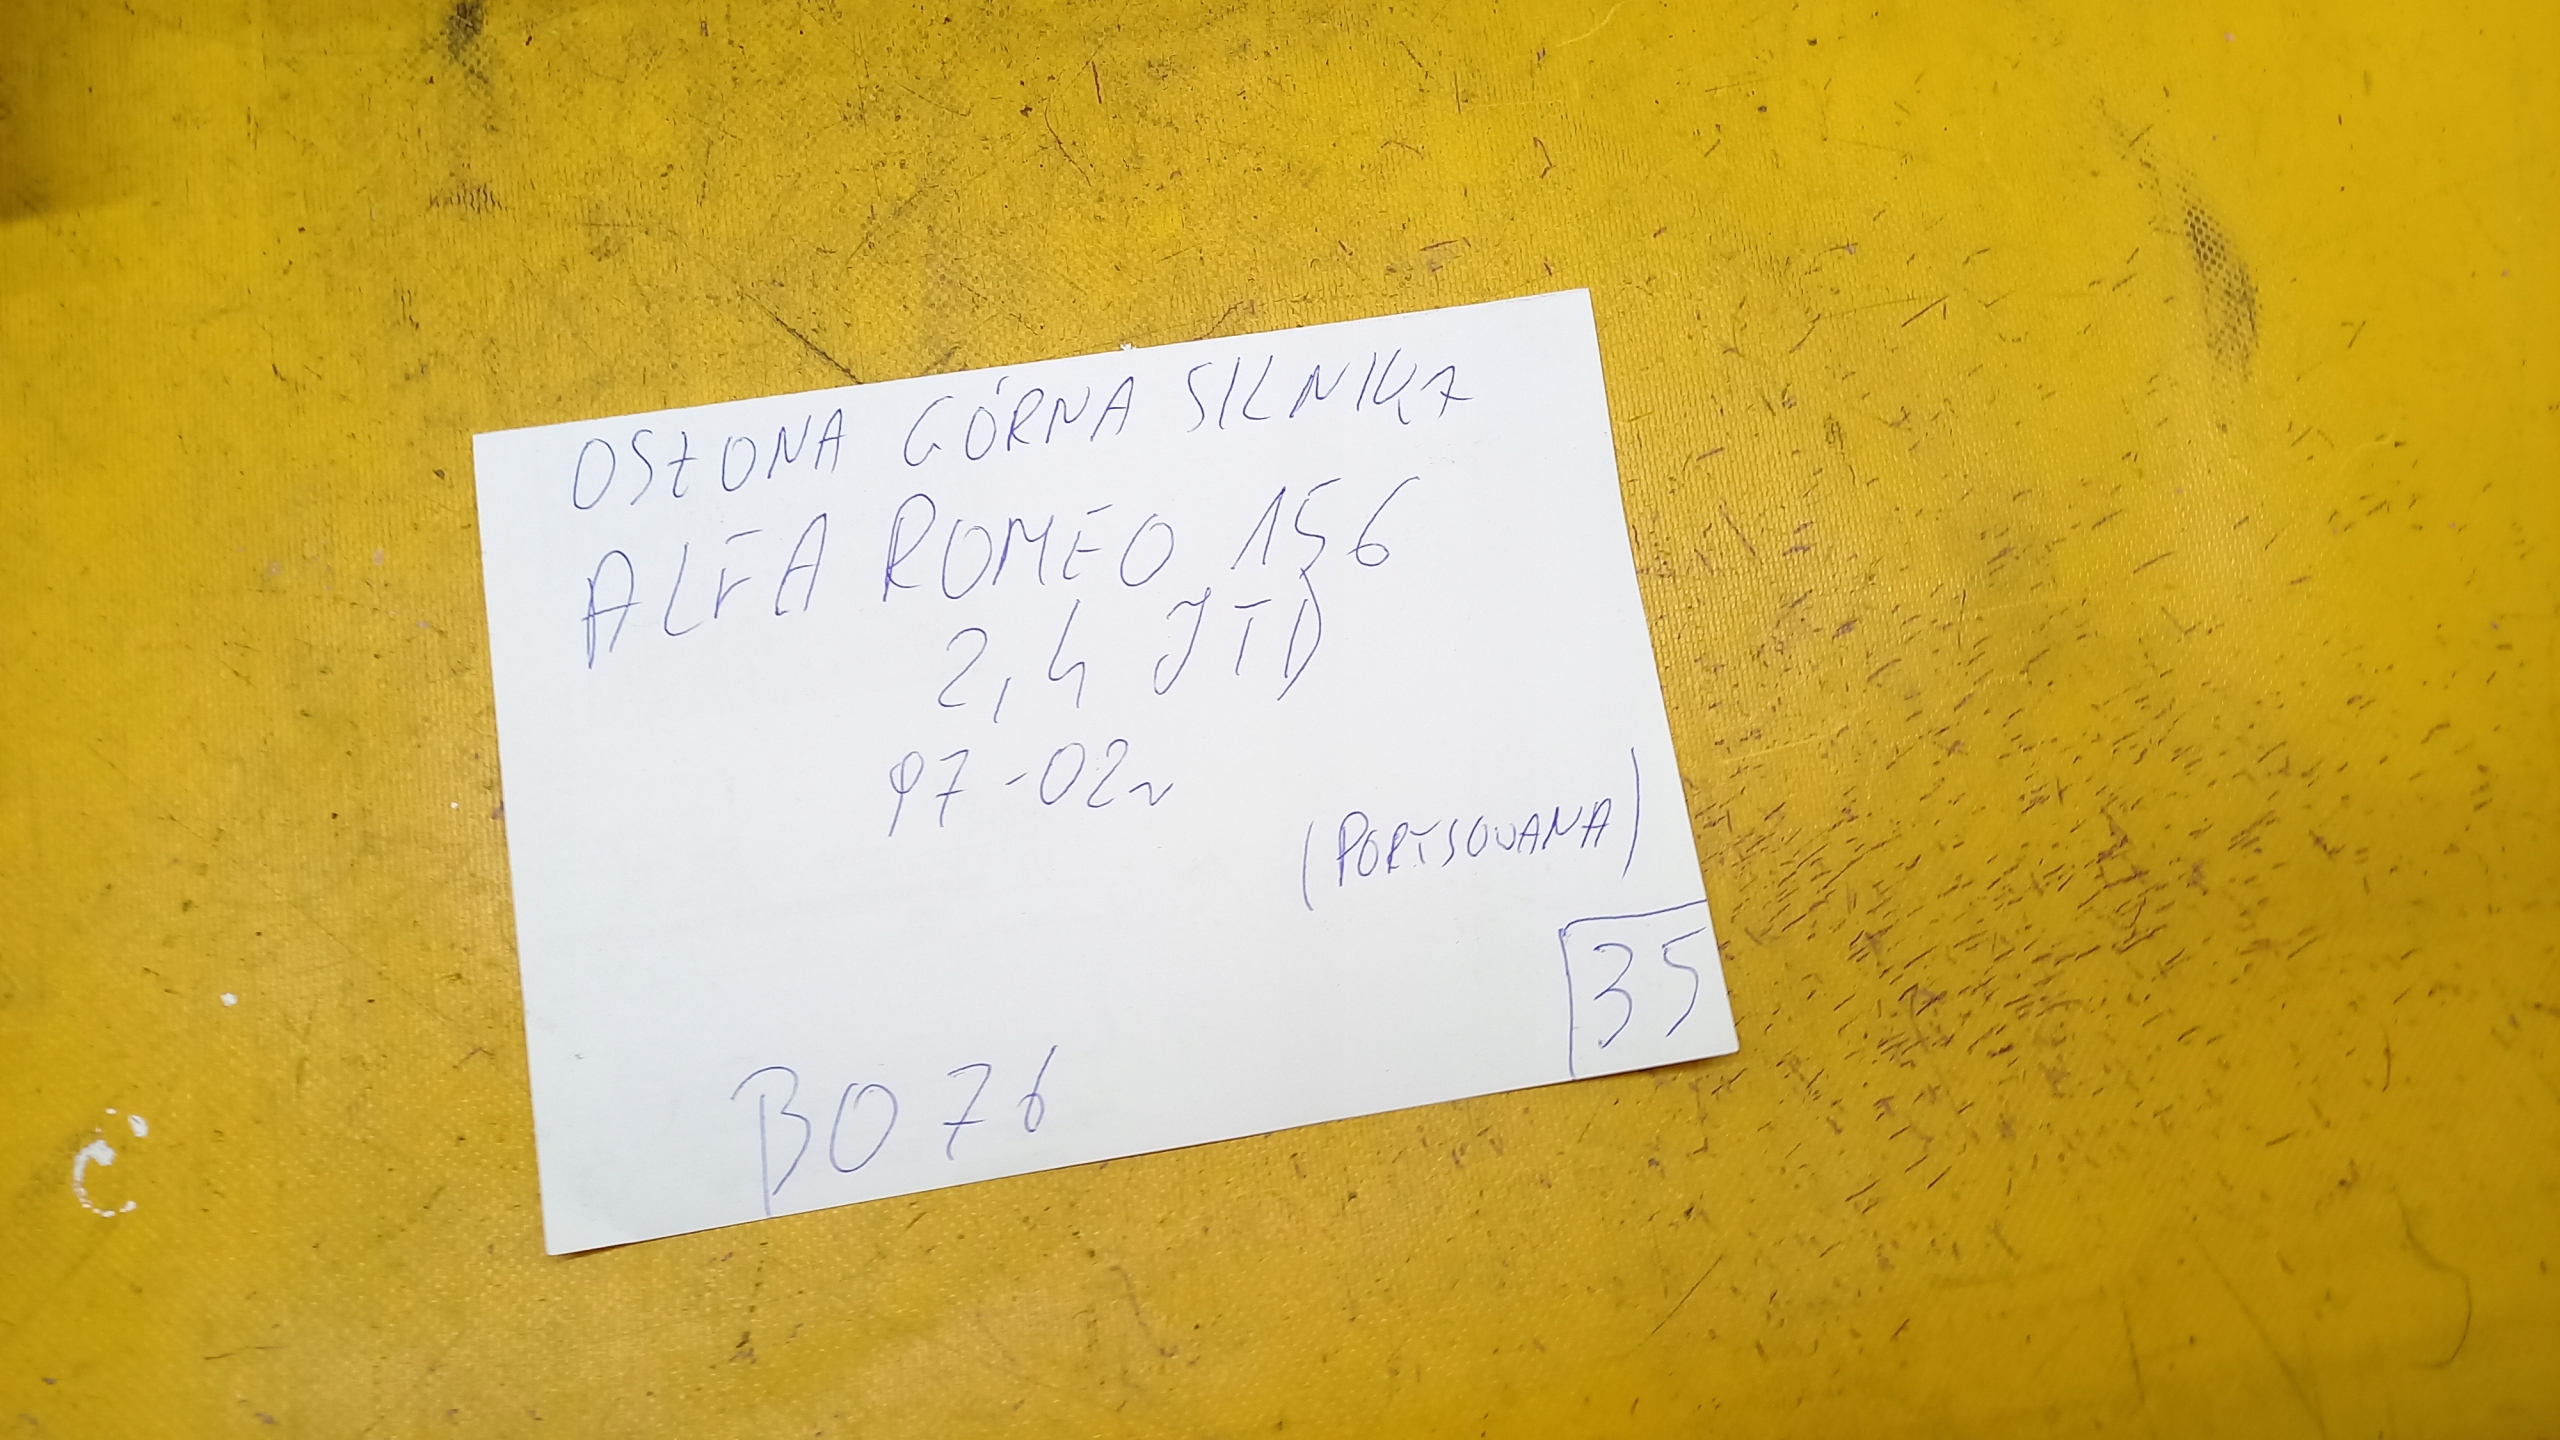 OSŁONA GÓRNA SILNIKA
ALFA ROMEO 156
2,4 JTD
97-02r
(PORYSOWANA)
35
BO76